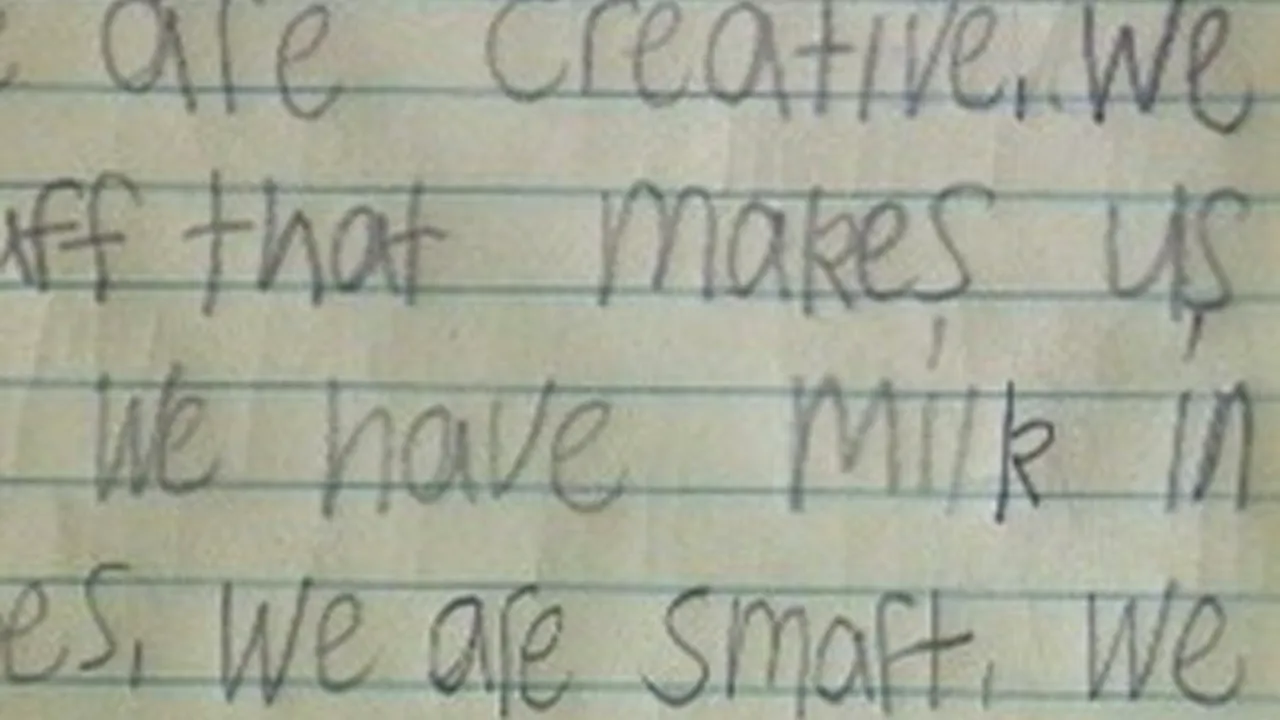 are creative. We
uff that makes us
We have milk in
es. We are smart. We